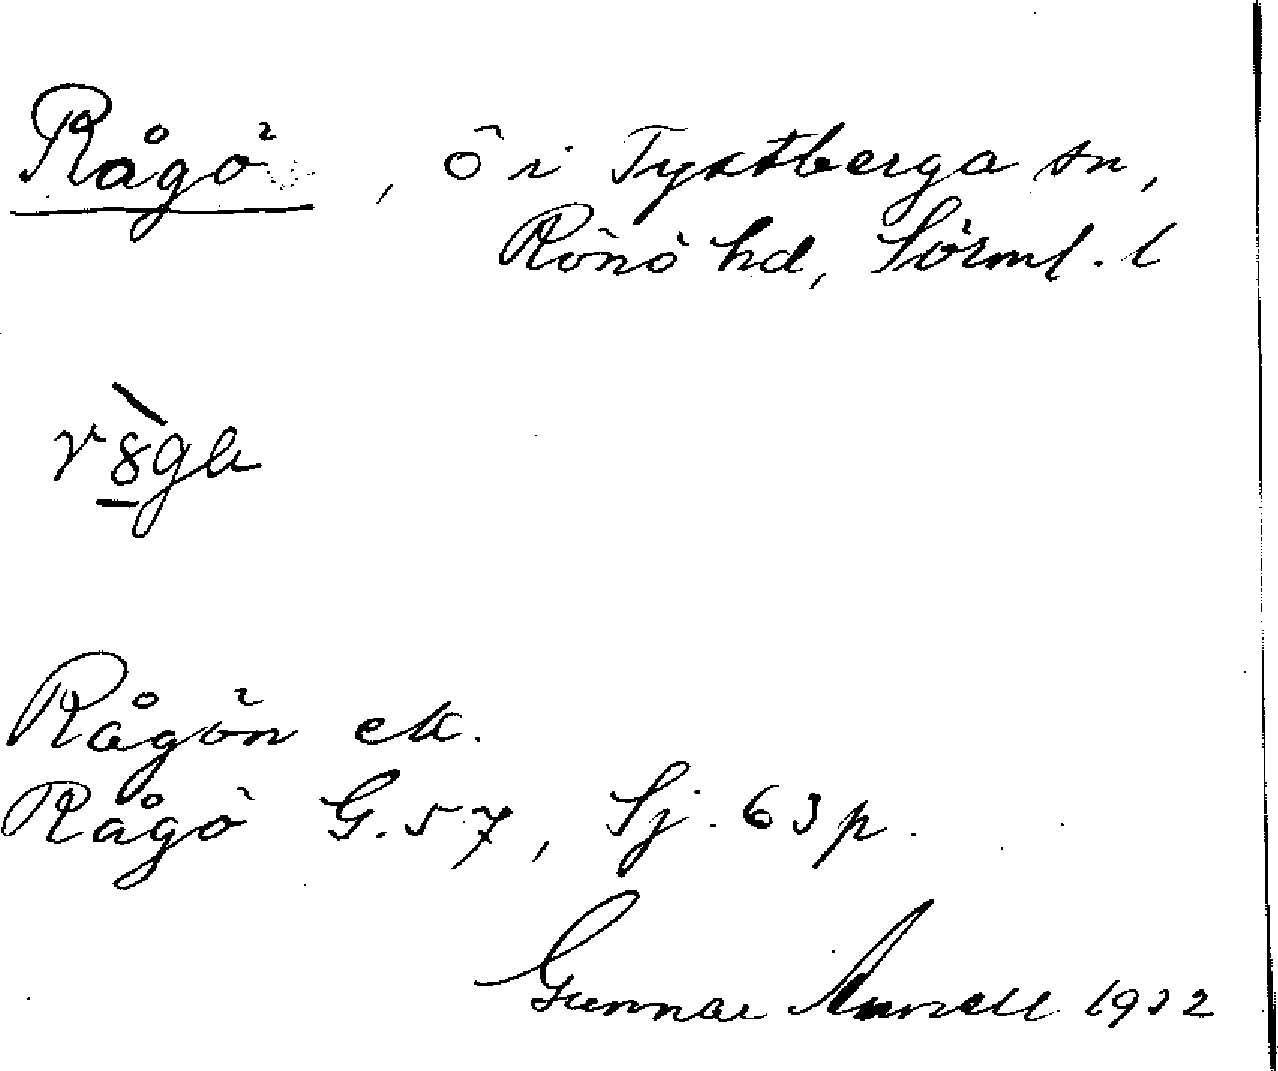 Rågö, ö i Tystberga sn,
Rönö hd, Sörml. l
Rågön ek.
Rågö G. 57, Sj. 63 p.
Gunnar Annell 1932